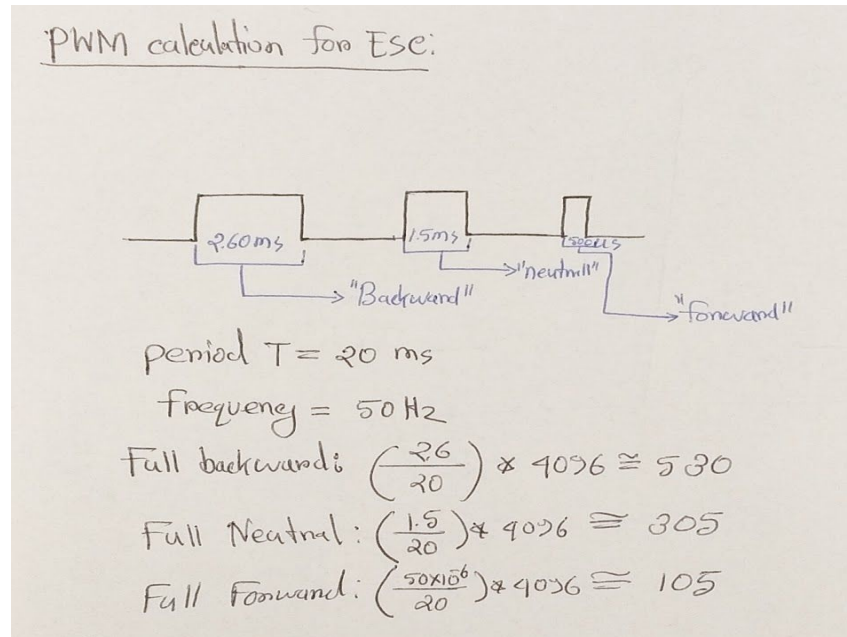 PWM calculation for ESC:
2.60ms
1.5ms
500us
"neutrall"
"Backward"
"forward"
period T = 20 ms
frequency = 50 Hz
Full backward: (2.6/20) * 4096 ≅ 530
Full Neutral: (1.5/20) * 4096 ≅ 305
Full Forward: (50x10⁶/20) * 4096 ≅ 105